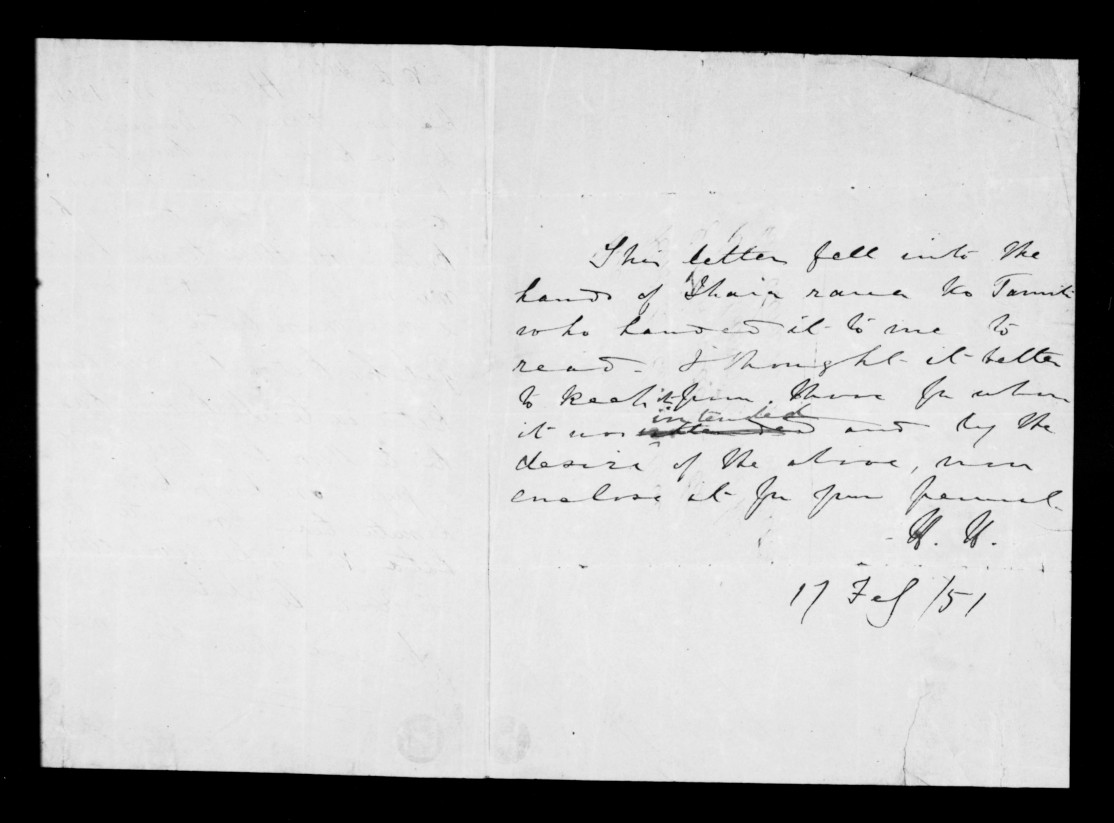 This letter fell into the
hands of Ihaia raua ko Tamati
who handed it to me to
read. I thought it better
to keep it from those for whom
it was intended and by the
desire of the above, now
enclose it for your perusal.
H. H.
17 Feb /51